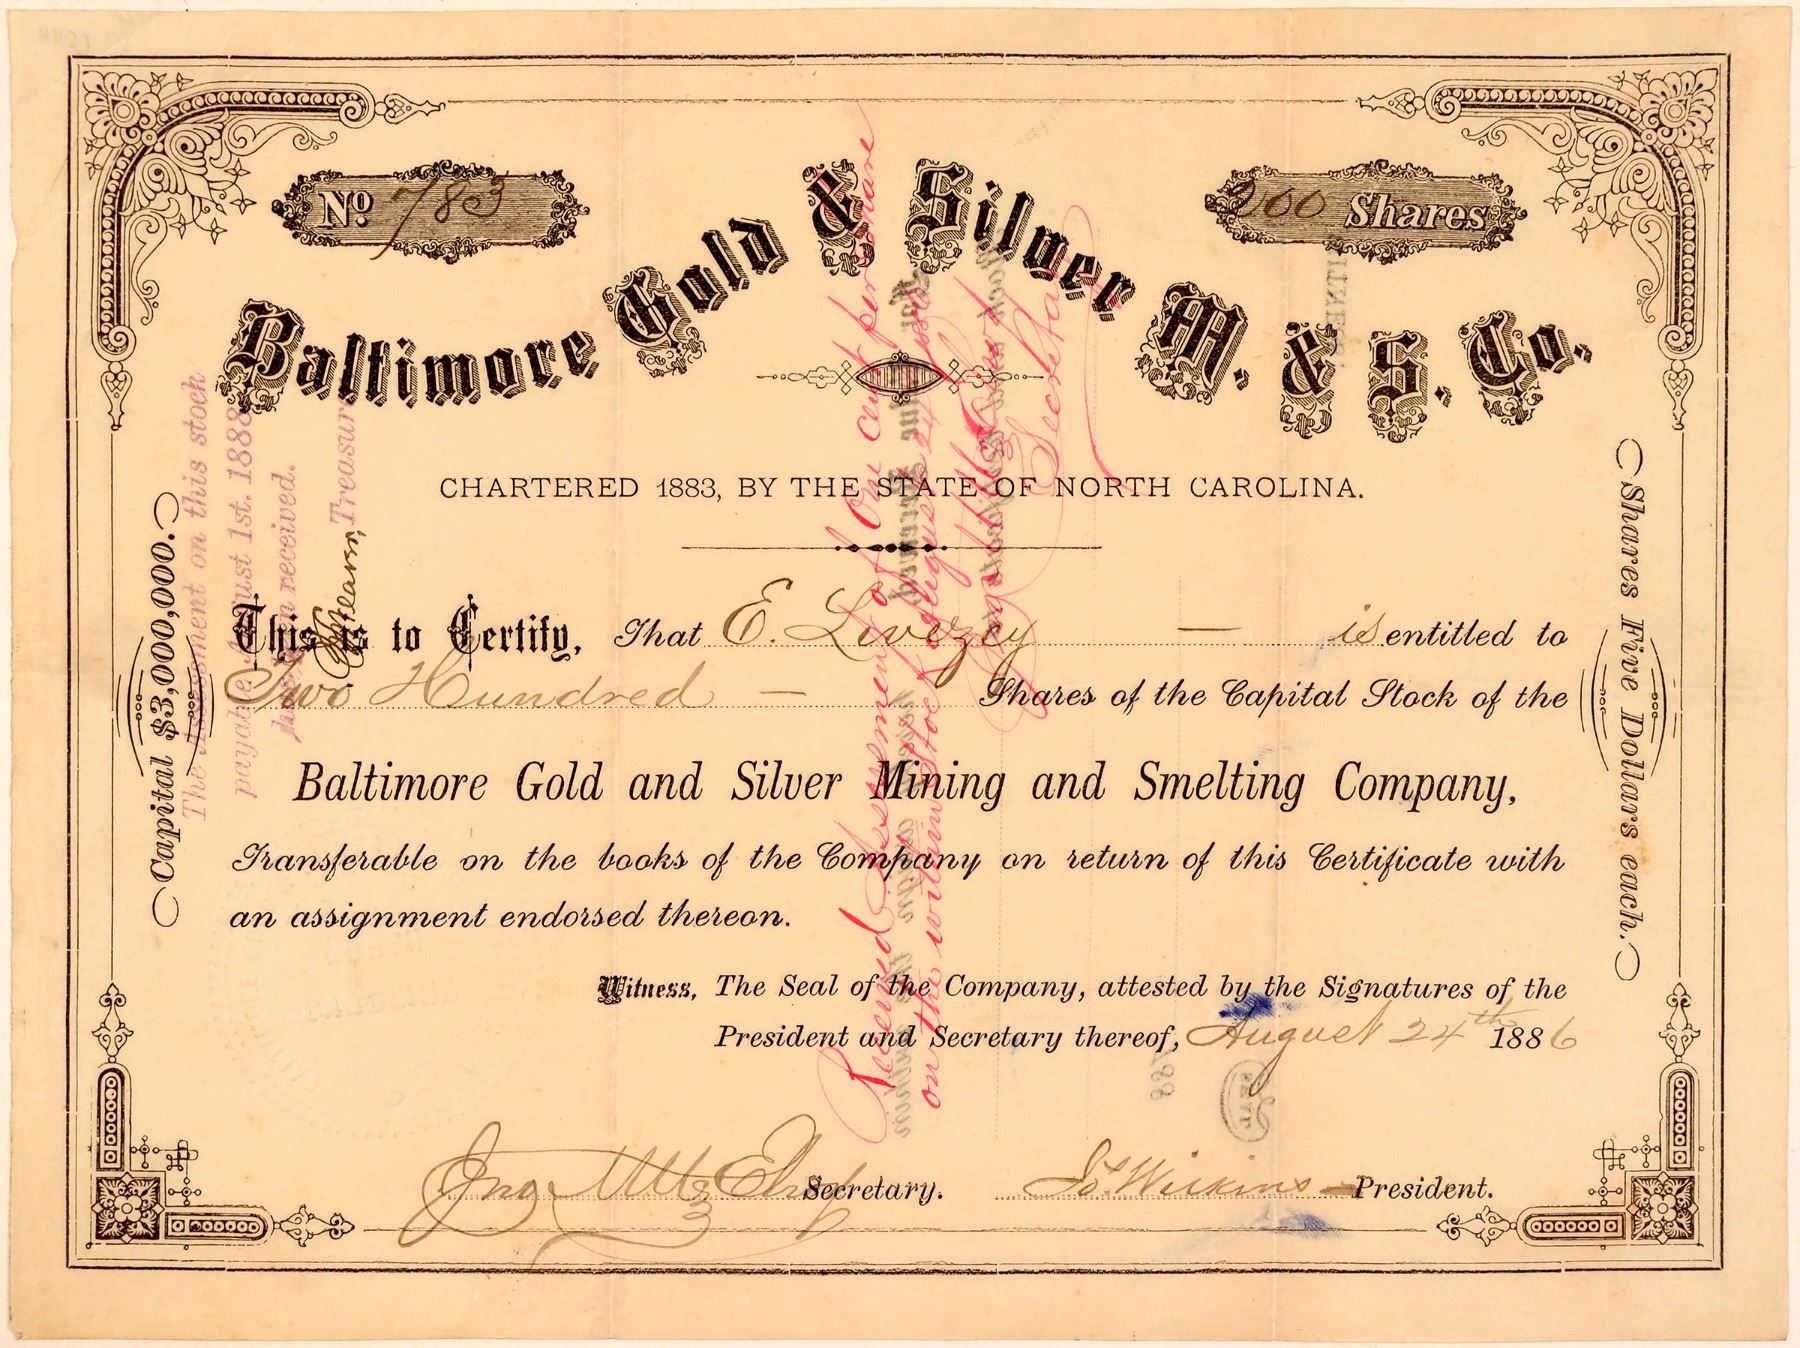 No. 783
200 Shares
Baltimore Gold & Silver M. & S. Co.
CHARTERED 1883, BY THE STATE OF NORTH CAROLINA.
Capital $3,000,000.
Shares Five Dollars each.
This is to Certify, That E. Livezey — is entitled to
Two Hundred — Shares of the Capital Stock of the
Baltimore Gold and Silver Mining and Smelting Company,
Transferable on the books of the Company on return of this Certificate with
an assignment endorsed thereon.
Witness, The Seal of the Company, attested by the Signatures of the
President and Secretary thereof, August 24th 1886
Secretary.
Jo. Wilkins President.
The Assessment on this stock
payable August 1st. 1888
has been received.
Treasurer
Received Assessment of One cent per share
on the within Stock August 24
Secretary